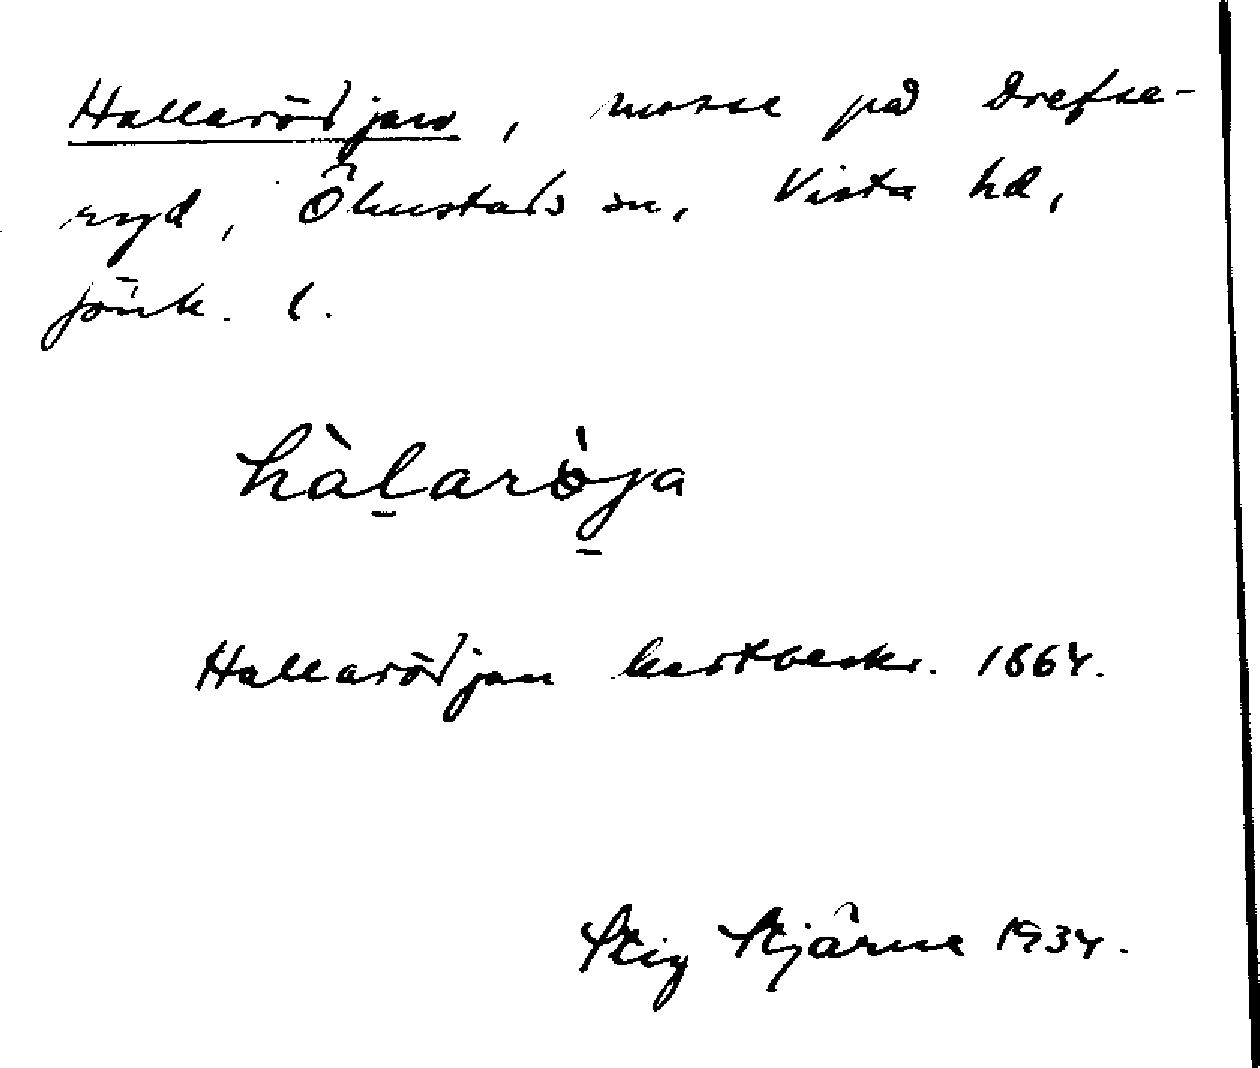 Hallarödjan, mosse på Drefse-
ryd, Ölmstads sn, Vista hd,
Jönk. l.
hàlaröja
Hallarödjan kartbeskr. 1864.
Stig Stjärne 1934.